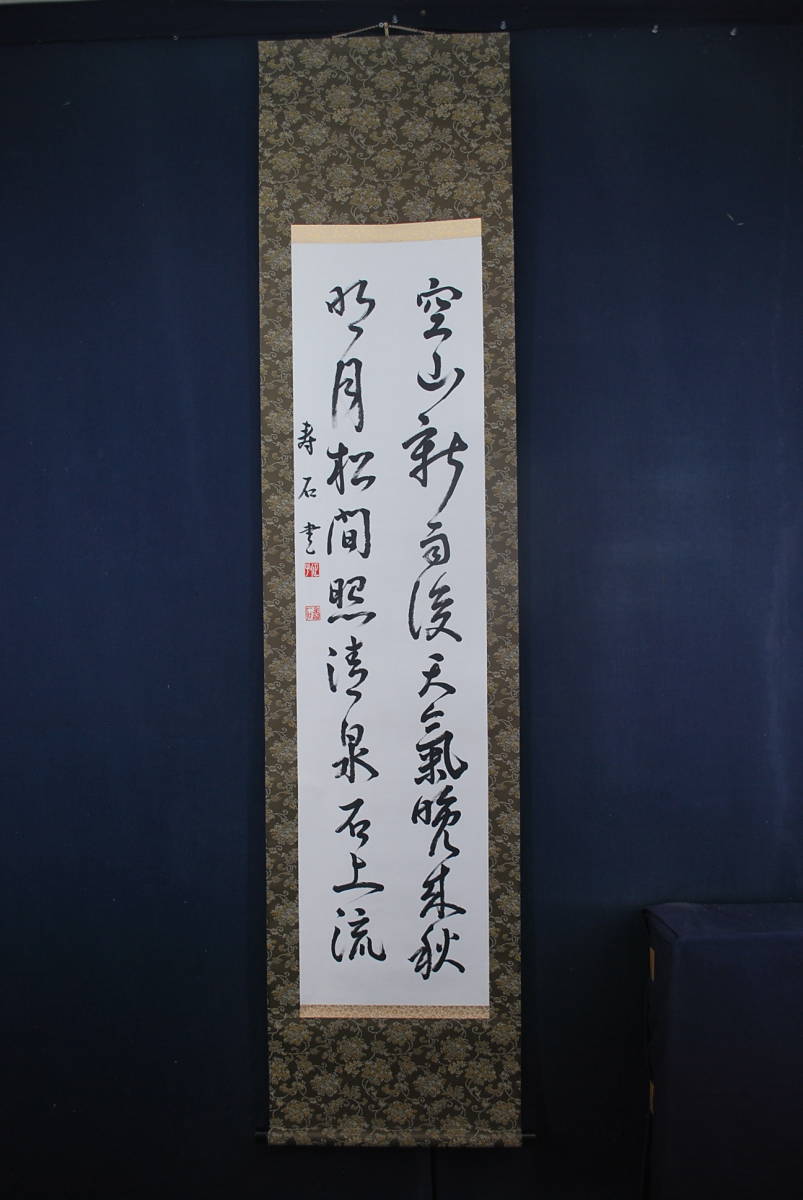 空山新雨後天氣晩来秋
明月松間照清泉石上流
寿石書